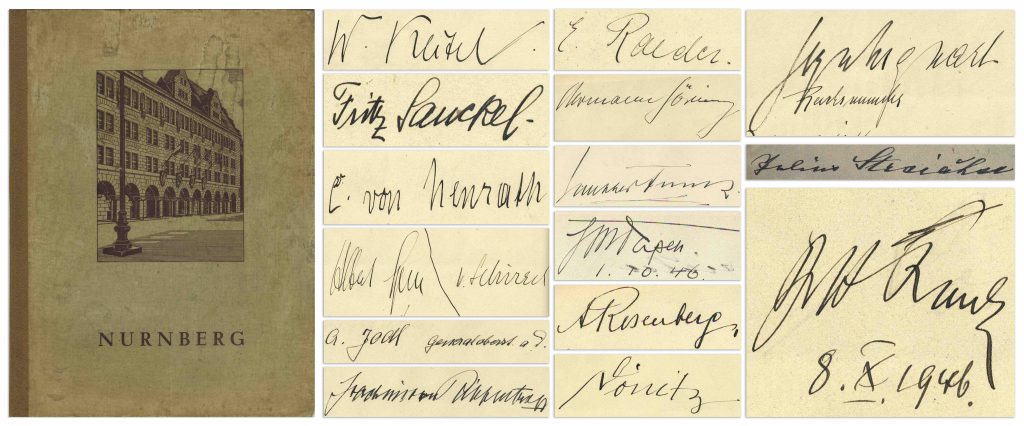 NURNBERG
W. Keitel
Fritz Sauckel.
C. von Neurath
Albert Speer v. Schirach
A. Jodl Generaloberst a.D.
Joachim von Ribbentrop
E. Raeder.
Hermann Göring
Funk
Papen.
1.10.46.
A Rosenberg
Dönitz
Reichsminister
Julius Streicher
Frank
8.X.1946.